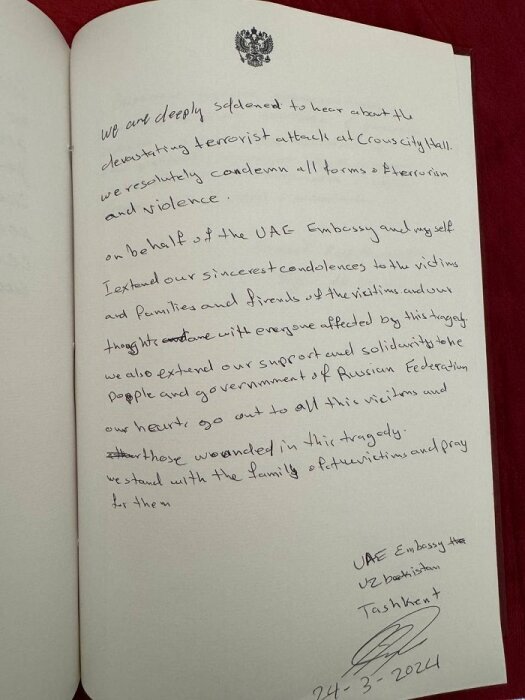 we are deeply saddened to hear about the
devastating terrorist attack at Crouscity Hall.
we resolutely condemn all forms of terrorism
and violence.
on behalf of the UAE Embassy and my self
I extend our sincerest condolences to the victims
and families and firends of the visitims and our
thoughts are with everyone affected by this tragedy.
we also extend our support and solidarity to the
people and governmment of Russian Federation
our hearts go out to all this vicitms and
those wounded in this tragedy.
we stand with the family of the victims and pray
for them
UAE Embassy
Uzbekistan
Tashkent
24-3-2024